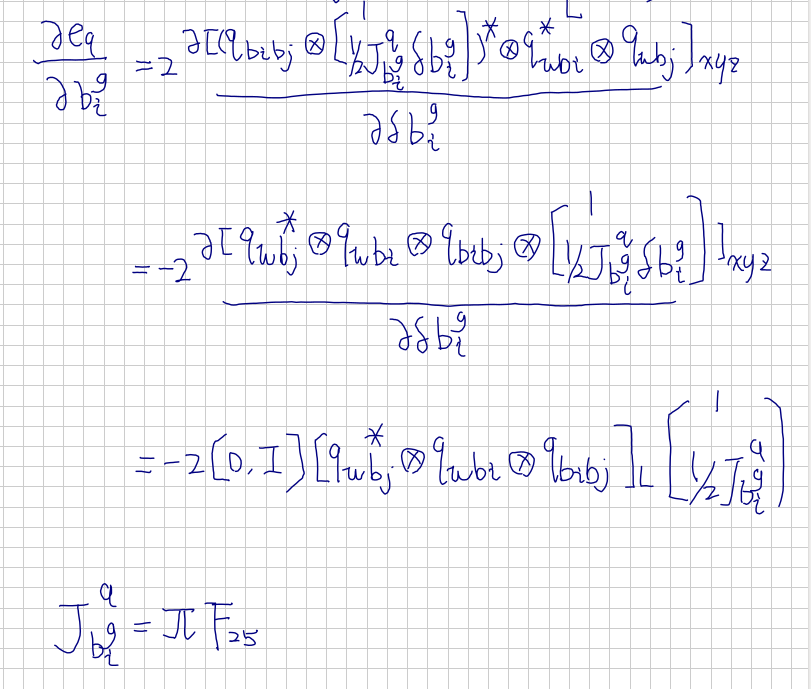 ∂e_q/∂b_i^g = 2 ∂[(q_{bibj} ⊗ [1 ½J_{b_i^g}^q δb_i^g])^* ⊗ q_{wbi}^* ⊗ q_{wbj}]_{xyz} / ∂δb_i^g
= -2 ∂[q_{wbj}^* ⊗ q_{wbi} ⊗ q_{bibj} ⊗ [1 ½J_{b_i^g}^q δb_i^g]]_{xyz} / ∂δb_i^g
= -2[0, I][q_{wbj}^* ⊗ q_{wbi} ⊗ q_{bibj}]_L [1 ½J_{b_i^g}^q]
J_{b_i^g}^q = π F_{25}